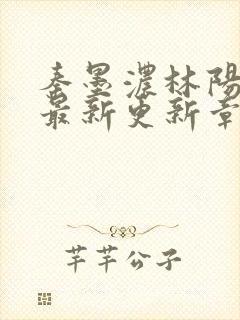 秦墨濃林陽
最新更新章
芊芊公子